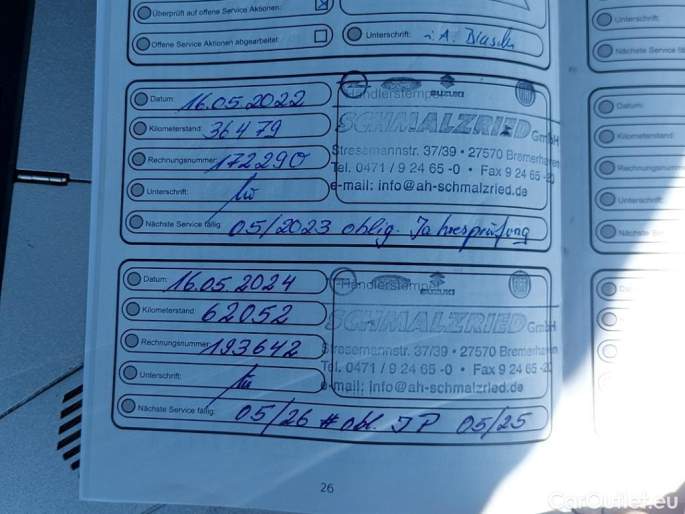 Überprüft auf offene Service Aktionen:
Offene Service Aktionen abgearbeitet:
Unterschrift: i. A.
Datum: 16.05.2022
Händlerstempel
SUZUKI
Kilometerstand: 36479
SCHMALZRIED GmbH
Rechnungsnummer: 172290
Stresemannstr. 37/39 • 27570 Bremerhaven
Tel. 0471 / 9 24 65 -0 • Fax 9 24 65 -20
Unterschrift:
e-mail: info@ah-schmalzried.de
Nächste Service fällig: 05/2023 oblig. Jahresprüfung
Datum: 16.05.2024
Händlerstempel
SUZUKI
Kilometerstand: 62052
SCHMALZRIED GmbH
Rechnungsnummer: 193642
Stresemannstr. 37/39 • 27570 Bremerhaven
Tel. 0471 / 9 24 65 -0 • Fax 9 24 65 -20
Unterschrift:
e-mail: info@ah-schmalzried.de
Nächste Service fällig: 05/26 # obl. JP 05/25
26
Unterschrift:
Nächste Service fä
Datum:
Kilometerstand:
Rechnungsnumm
Unterschrif
Nächste Ser
CarOutlet.eu